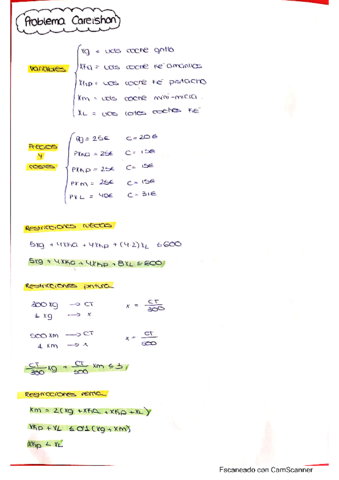 Problema Careishon
Variables
Xg = uds coche grillo
XRa = uds coche RE amarillos
XRp = uds coche RE pistacho
Xm = uds coche mini-micra
XL = uds lotes coches RE
Precios y costes
Pg = 25€ C = 20€
PXRa = 25€ C = 15€
PXRp = 25€ C = 15€
PXm = 25€ C = 15€
PXL = 40€ C = 31€
Restricciones
5Xg + 4XRa + 4XRp + (4·2)XL ≤ 600
5Xg + 4XRa + 4XRp + 8XL ≤ 600
Restricciones pintura
300 Xg → CT x = CT/300
1 Xg → x
500 Xm → CT x = CT/500
1 Xm → x
CT/300 Xg + CT/500 Xm ≤ 1
Restricciones
Xm = 2(Xg + XRa + XRp + XL)
XRp + XL ≤ 0'1(Xg + Xm)
XRp ≤ XL
Escaneado con CamScanner